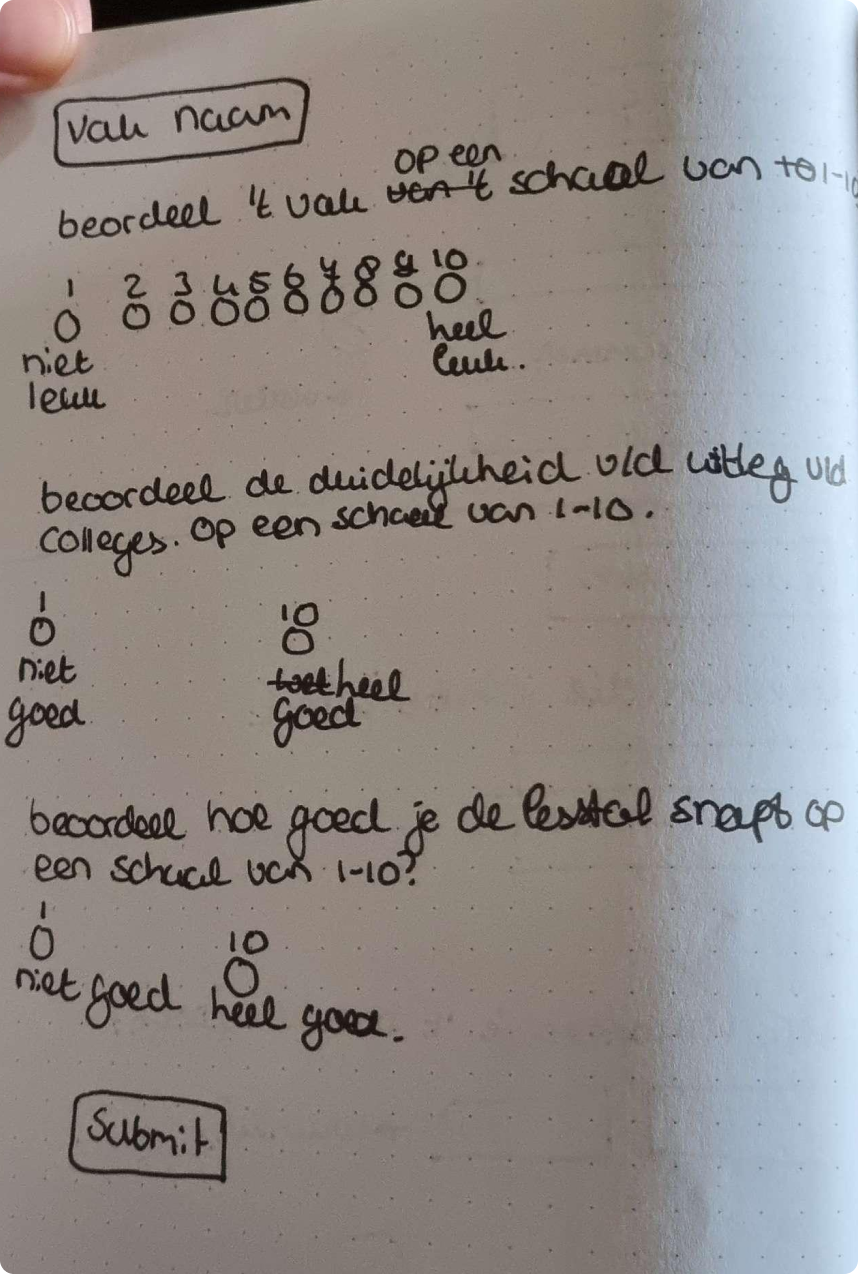 vak naam
op een
beordeel 't vak van 't schaal van to 1-10
1 2 3 4 5 6 7 8 9 10
niet heel
leuk leuk.
beoordeel de duidelijkheid v/d uitleg v/d
colleges. op een schaal van 1-10.
1 10
niet heel
goed goed
beoordeel hoe goed je de lesstof snapt op
een schaal van 1-10?
1 10
niet goed heel goed.
Submit